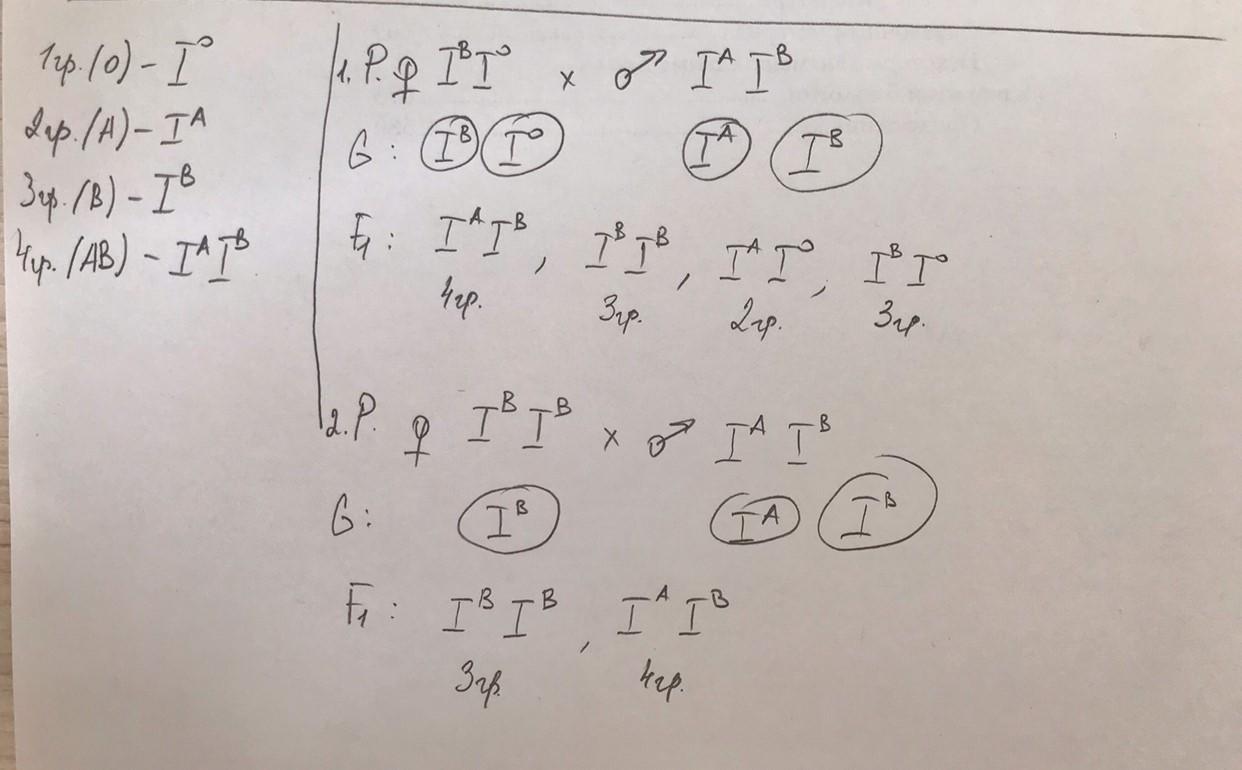 1гр.(0) - I⁰
2гр.(A) - Iᴬ
3гр.(B) - Iᴮ
4гр.(AB) - IᴬIᴮ
1. P. ♀ IᴮI⁰ × ♂ IᴬIᴮ
G: Iᴮ I⁰ Iᴬ Iᴮ
F₁: IᴬIᴮ, IᴮIᴮ, IᴬI⁰, IᴮI⁰
4гр. 3гр. 2гр. 3гр.
2. P. ♀ IᴮIᴮ × ♂ IᴬIᴮ
G: Iᴮ Iᴬ Iᴮ
F₁: IᴮIᴮ, IᴬIᴮ
3гр. 4гр.